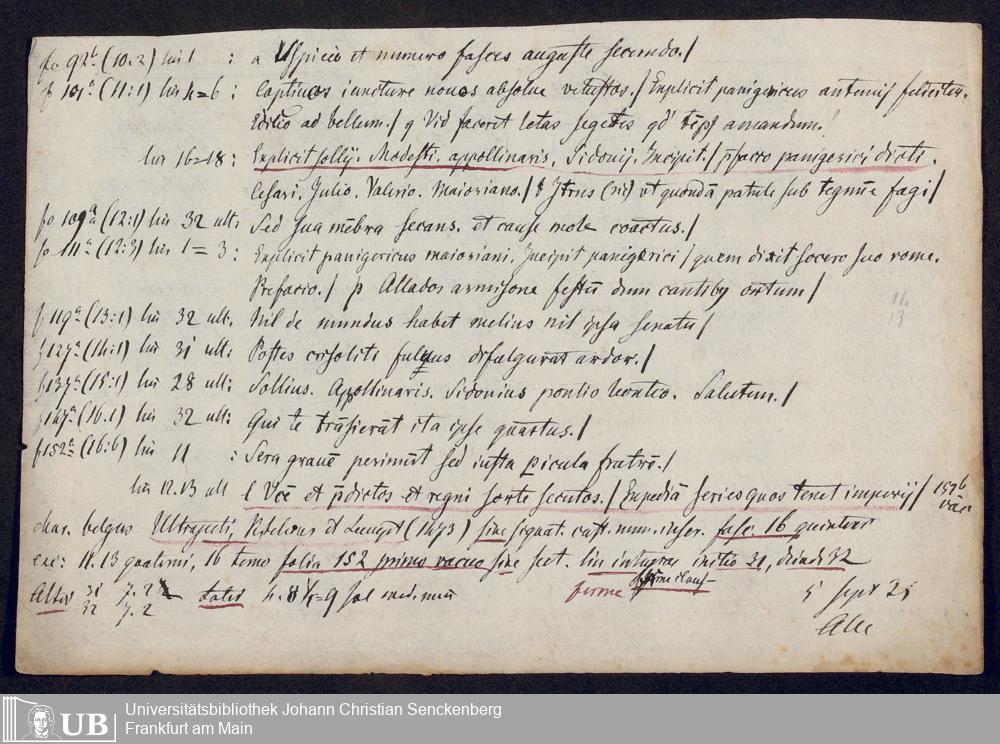 fo 92b (10.2) lin 1 : a Uspicio et numero fasces auguste secundo./
f 101a (11:1) lin 4=6 : Captiuos iuncture nouos absolue vetustos./ Explicit panigericus antemii feliciter.
Editio ad bellum./ q Vid faceret letas segetes qd' tēpꝰ amandum./
lin 16=18 : Explicit sollij. Modesti. appollinaris. Sidonij. Incipit./ p̄facio panigericj dicti.
Cesari. Julio. Valerio. Maioriano./ t Jtirus (sic) vt quondā patule sub tegmīe fagi/
fo 109a (12:1) lin 32 ult: Sed sua mēbra secans. et cause mole coactus./
fo 111a (12:3) lin 1=3 : Explicit panigericus maioriani. Incipit panigerici/quem dixit socero suo rome.
Prefacio./ p Allados armisone festū dum cantibꝰ ortum/
11.
13
f 119a (13:1) lin 32 ult. Nil de mundus habet melius nil ipsa senatu/
f 127a (14:1) lin 31 ult: Postes crisoliti fuluus difulgurat ardor./
f 137a (15:1) lin 28 ult: Sollius. Appollinaris. Sidonius pontio leontio. Salutem./
f 147a (16.1) lin 32 ult: Qui te trāsierāt ita ipse quartus./
f 152a (16:6) lin 11 : Sera grauē perimūt sed iusta picula fratrē./
lin 12.13 ult l Vcē et p̄dictos et regni sorte secutos./ Expediā series quos tenet imperij/ 152b vac
char. belgus Ultrajecti, Ketelaer et Leempt (1473) sine signat. cust. num. inscr. fasc 16 quinterni
exc: 11. 13 quaterni, 16 terno folia 152 primo vacuo sine sect. lin integras initio 31, deind 32
Altit 31 7.2 Latit 4. 8 1/2=9 fol med. min
32 7.2
forme
5 Sept 28